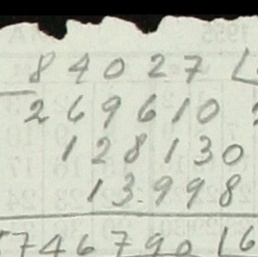 84027
269610
128130
13998
746790 16